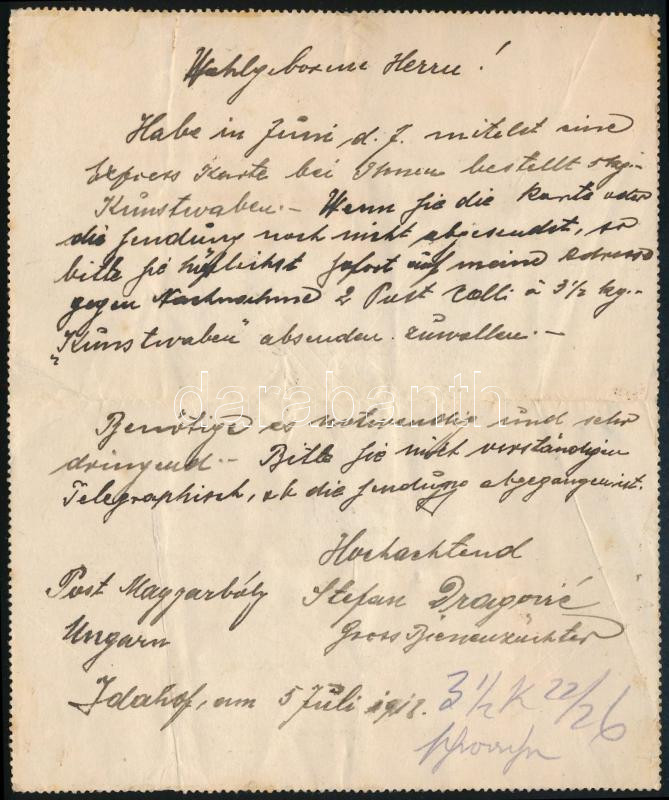 Wohlgeborene Herrn!
Habe in Juni d. J. mitelst eine
Express Karte bei Ihnen bestellt kg.-
Kunstwaben.- Wenn Sie die Karte oder
die Sendung noch nicht abgesendet, so
bitte Sie höflichst sofort auf meine Adresse
gegen Nachnahme 2 Post Colli à 3 1/2 kg.-
"Kunstwaben" absenden zuwollen.-
darabanth
Benötige es notwendig und sehr
dringend.- Bitte Sie mich verständigen
Telegraphisch, ob die Sendung abgegangen ist.
Hochachtend
Post Magyarbóly Stefan Dragović
Ungarn Gross Bienenzüchter
Idahof, am 5 Juli 1918.
3 1/2 K 22/26